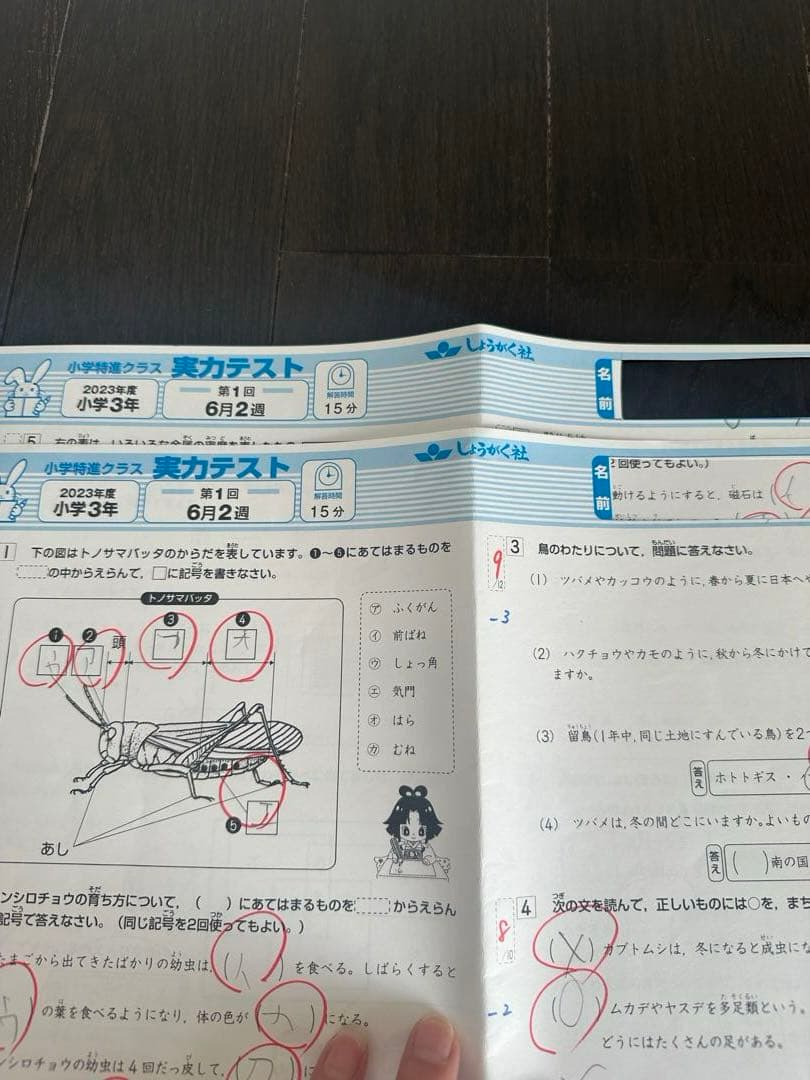 小学特進クラス 実力テスト
しょうがく社
2023年度
小学3年
第1回
6月2週
解答時間
15分
名前
5
小学特進クラス 実力テスト
しょうがく社
2023年度
小学3年
第1回
6月2週
解答時間
15分
名前
回使ってもよい。)
動けるようにすると，磁石は
1 下の図はトノサマバッタのからだを表しています。❶～❺にあてはまるものを
の中からえらんで，□に記号を書きなさい。
トノサマバッタ
❶ ❷ 頭 ❸ ❹
ウ
オ
❺
エ
あし
㋐ ふくがん
㋑ 前ばね
㋒ しょっ角
㋓ 気門
㋔ はら
㋕ むね
ンシロチョウの育ち方について，( )にあてはまるものを からえらん
記号で答えなさい。(同じ記号を2回使ってもよい。)
たまごから出てきたばかりの幼虫は，( )を食べる。しばらくすると
(ウ)の葉を食べるようになり，体の色が( )になる。
ンシロチョウの幼虫は4回だっ皮して，(カ)に
9/12
-3
3 鳥のわたりについて，問題に答えなさい。
(1) ツバメやカッコウのように，春から夏に日本へや
(2) ハクチョウやカモのように，秋から冬にかけて
ますか。
(3) 留鳥(1年中，同じ土地にすんでいる鳥)を2
答え ホトトギス・
(4) ツバメは，冬の間どこにいますか。よいもの
答え ( )南の国
8/10
-2
4 次の文を読んで，正しいものには○を，まち
(×) カブトムシは，冬になると成虫にな
(○) ムカデやヤスデを多足類という。
どうにはたくさんの足がある。